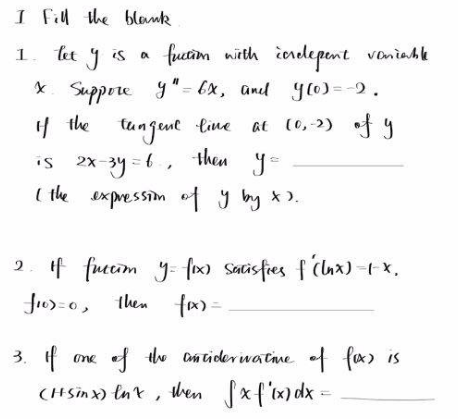 I Fill the blank
1. let y is a fuction with indepent variable
x. Suppore y" = 6x, and y(0) = -2.
If the tangent line at (0,-2) of y
is 2x-3y=6, then y=
(the expression of y by x).
2. If fuction y=f(x) satisfies f'(lnx)=1-x,
f(0)=0, then f(x)=
3. If one of the antiderivative of f(x) is
(1+sinx) lnx, then ∫xf'(x)dx =